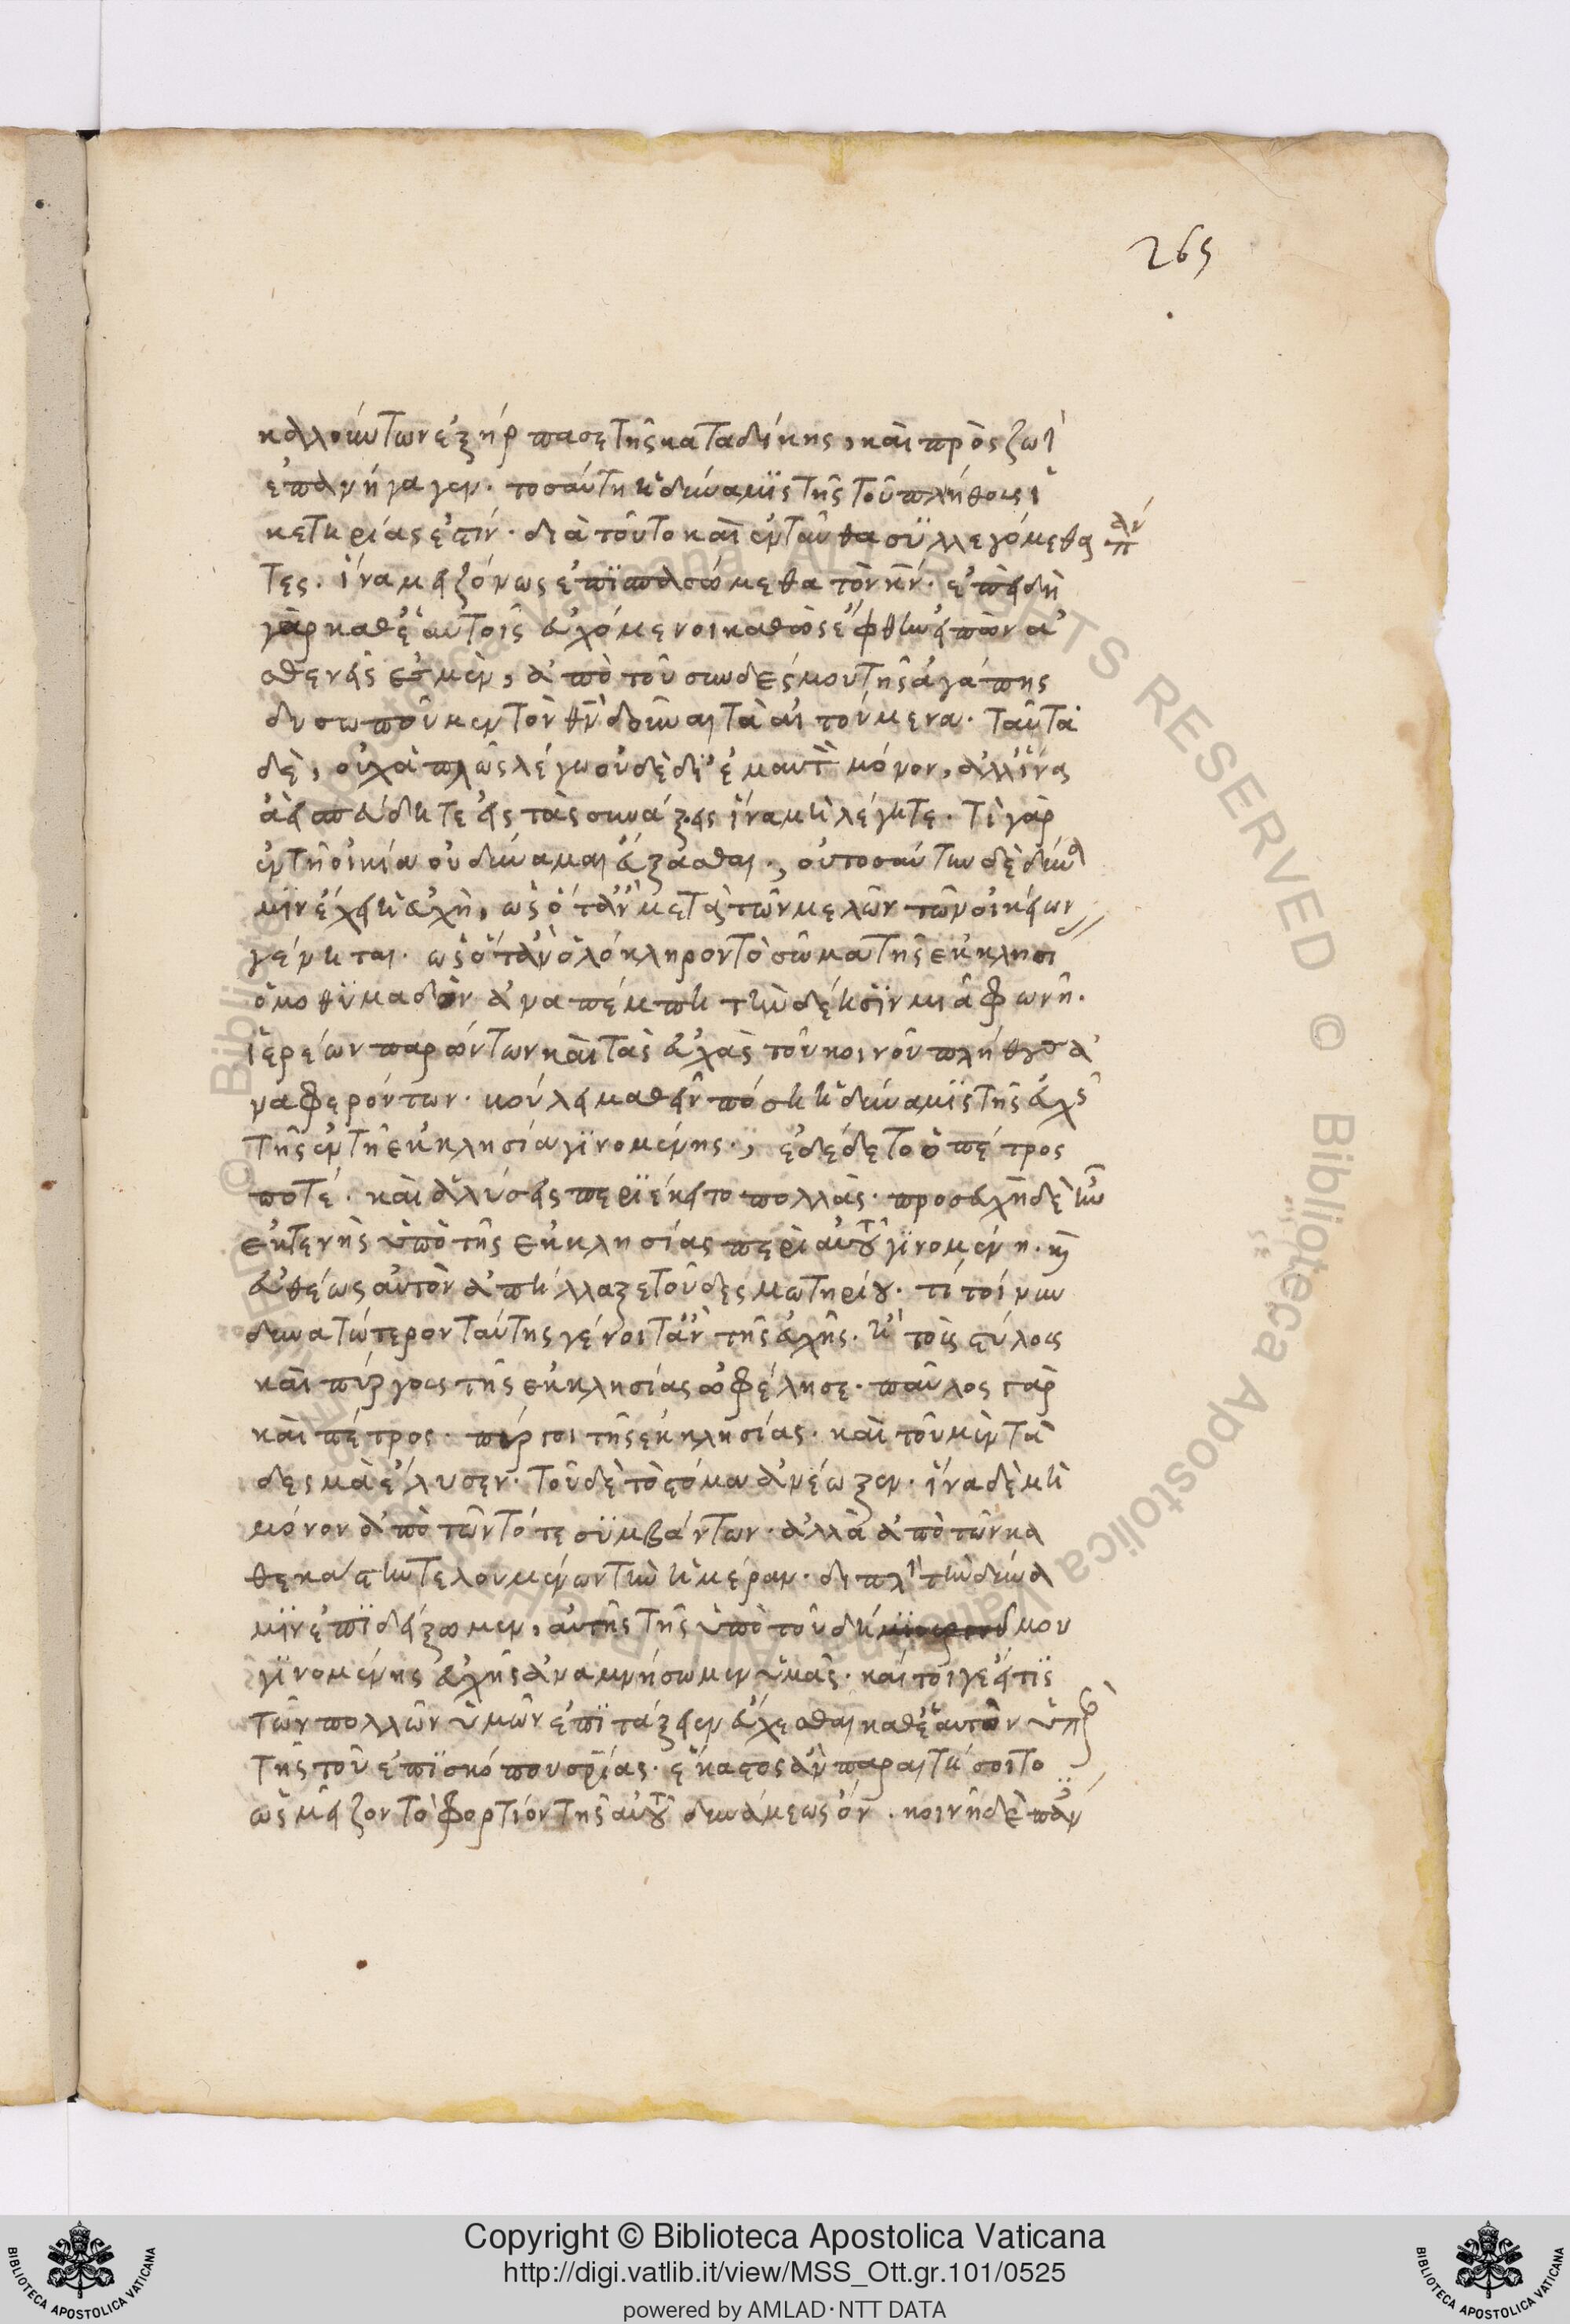 265
καλούντων ἐξήρπασε τῆς καταδίκης, καὶ πρὸς ζωὴ
ἐπανήγαγεν. τοσαύτη ἡ δύναμις τῆς τοῦ πλήθους ἱ
κετηρίας ἐστίν. διὰ τοῦτο καὶ ἐνταῦθα συλλεγόμεθα παν
τες. ἵνα μειζόνως ἐπισπασώμεθα τὸν κν. ἐπειδὴ
γὰρ καθ' ἑαυτοῖς εὐχόμενοι καθὼς ἔφθην εἰπὼν ἀ
σθενεῖς ἐσμὲν, ἀπὸ τοῦ συνδέσμου τῆς ἀγάπης
δυσωποῦμεν τὸν θν δοῦναι τὰ αἰτούμενα. ταῦτα
δὲ, οὐχ ἁπλῶς λέγω οὐδὲ δι' ἐμαυτὸ μόνον, ἀλλ' ἵνα
ἀεὶ σπεύδητε εἰς τὰς συνάξεις ἵνα μὴ λέγητε. τί γὰρ
ἐν τῇ οἰκία οὐ δύναμαι εὔξασθαι; οὐ τοσαύτην δὲ δύνα
μιν ἔχει ἡ εὐχὴ, ὡς ὅταν μετὰ τῶν μελῶν τῶν οἰκείων
γένηται. ὡς ὅταν ὁλόκληρον τὸ σῶμα τῆς ἐκκλησι
ὁμοθυμαδὸν ἀναπέμπη τὴν δέησιν μιᾶ φωνῆ.
ἱερέων παρόντων καὶ τὰς εὐχὰς τοῦ κοινοῦ πλήθους ἀ
ναφερόντων. βούλει μαθεῖν πόση ἡ δύναμις τῆς εὐχς
τῆς ἐν τῇ ἐκκλησία γινομένης; ἐδέδετο ὁ πέτρος
ποτέ. καὶ ἁλύσεις περιέκειτο πολλὰς. προσευχὴ δὲ ἦν
ἐκτενὴς ὑπὸ τῆς ἐκκλησίας περὶ αὐτοῦ γινομένη. κς
εὐθέως αὐτὸν ἀπήλλαξε τοῦ δεσμωτηρίου. τί τοίνυν
δυνατώτερον ταύτης γένοιτ' ἂν τῆς εὐχῆς. ἣ τοὺς στύλους
καὶ πύργους τῆς ἐκκλησίας ὠφέλησε. παῦλος γὰρ
καὶ πέτρος. πύργοι τῆς ἐκκλησίας. καὶ τοῦ μὲν τὰ
δεσμὰ ἔλυσεν. τοῦ δὲ τὸ στόμα ἀνέωξεν. ἵνα δὲ μὴ
μόνον ἀπὸ τῶν τότε συμβάντων. ἀλλὰ ἀπὸ τῶν κα
θεκάστην τελουμένων τὴν ἡμέραν. διπλὴ τὴν δύνα
μιν ἐπιδείξωμεν, αὐτῆς τῆς ὑπὸ τοῦ δήμου
γινομένης εὐχῆς ἀναμνήσωμεν ὑμᾶς. καίτοιγε εἴ τις
τῶν πολλῶν ὑμῶν ἐπιτάξειεν εὔχεσθαι καθ' ἑαυτὸν ὑπὲρ
τῆς τοῦ ἐπισκόπου σρίας. ἕκαστος ἂν παραιτήσοιτο
ὡς μεῖζον τὸ φορτίον τῆς αὐτοῦ δυνάμεως ὄν. κοινῇ δὲ παν